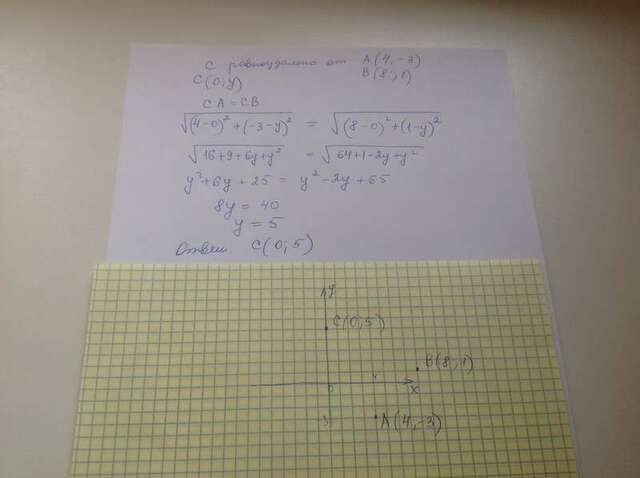 С равноудалена от A(4,-3)
B(8,1)
C(0,y)
CA=CB
√(4-0)²+(-3-y)² = √(8-0)²+(1-y)²
√16+9+6y+y² = √64+1-2y+y²
y²+6y+25 = y²-2y+65
8y = 40
y = 5
Ответ. C(0;5)
y
C(0;5)
B(8,1)
0
4
x
3
A(4,-3)